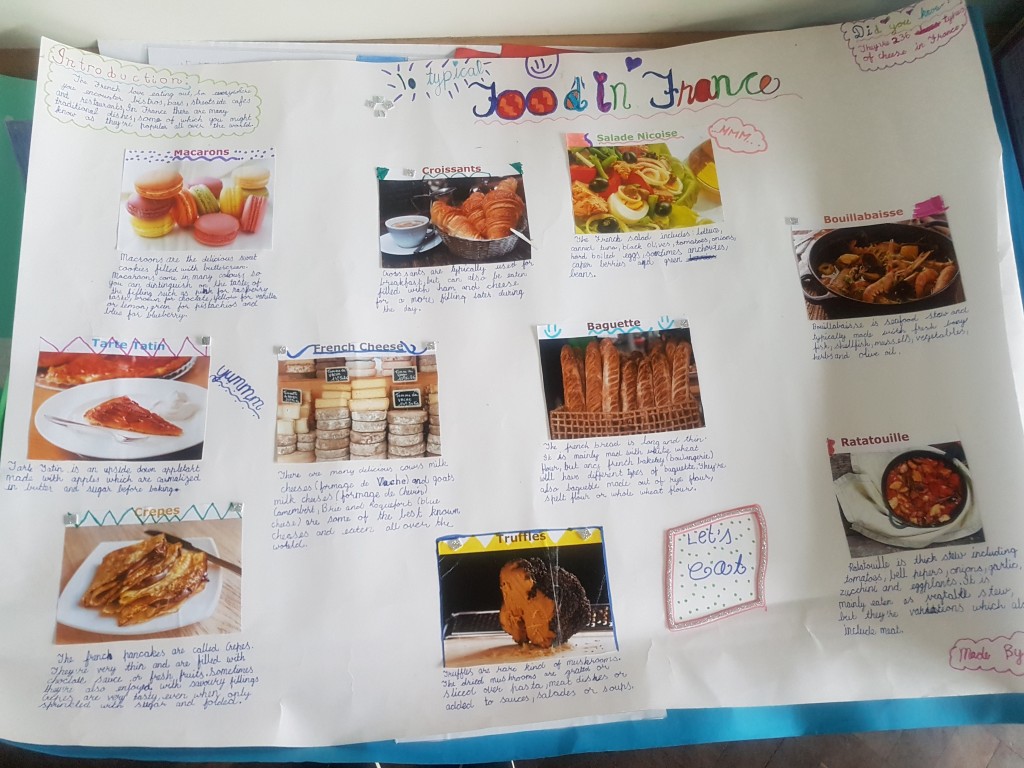 Introduction:
The French love eating out, so everywhere
you encounter bistros, bars, streetside cafes
and restaurants. In France there are many
traditional dishes, some of which you might
know as they're popular all over the world.
typical
Food in France
Did you know?
They're 236 types
of cheese in France
Macarons
Macaroons are the delicious sweet
cookies filled with
Macaroons come in many colours, so
you can distinguish on the taste of
the filling such as pink for raspberry
taste, brown for chocolate, yellow for vanilla
or lemon, green for pistachios and
blue for blueberry.
Croissants
Croissants are typically used for
breakfast, but can also be eaten
filled with ham and cheese
for a more filling later during
the day.
Salade Nicoise
MMM...
The French salad includes: lettuce,
canned tuna, black olives, tomatoes, onions,
hard boiled eggs, sometimes anchovies,
caper berries and green
beans.
Bouillabaisse
Bouillabaisse is seafood stew and
typically made with fresh
fish, shellfish, mussells, vegetables,
herbs and olive oil.
Tarte Tatin
yummm
Tarte Tatin is an upside down appletart
made with apples which are carmalized
in butter and sugar before baking.
French Cheese
There are many delicious cows milk
cheeses (formage de Vache) and goats
milk cheeses (formage de Chevre)
Camembert, Brie and Roquefort (blue
cheese) are some of the best known
cheeses and eaten all over the
world.
Baguette
The french bread is long and thin.
It is mainly mad with white wheat
flour, but any french bakery (boulangerie)
will have different types of baguette. They're
also baguette made out of rye flour,
spelt flour or whole wheat flour.
Ratatouille
Ratatouille is thick stew including
tomatoes, bell pepers, onions, garlic,
zucchini and eggplants. It is
mainly eaten as vegtable stew,
but they're variations which also
include meat.
Crepes
The french pancakes are called Crepes.
They're very thin and are filled with
choclate sauce or fresh fruits. Sometimes
they're also enjoyed with savoury fillings
Crepes are very tasty even when only
sprinkled with sugar and folded.
Truffles
Truffles are rare kind of mushrooms.
The dried mushrooms are grated or
sliced over pasta, meat dishes or
added to sauces, salades or soups.
Let's
eat
Made By